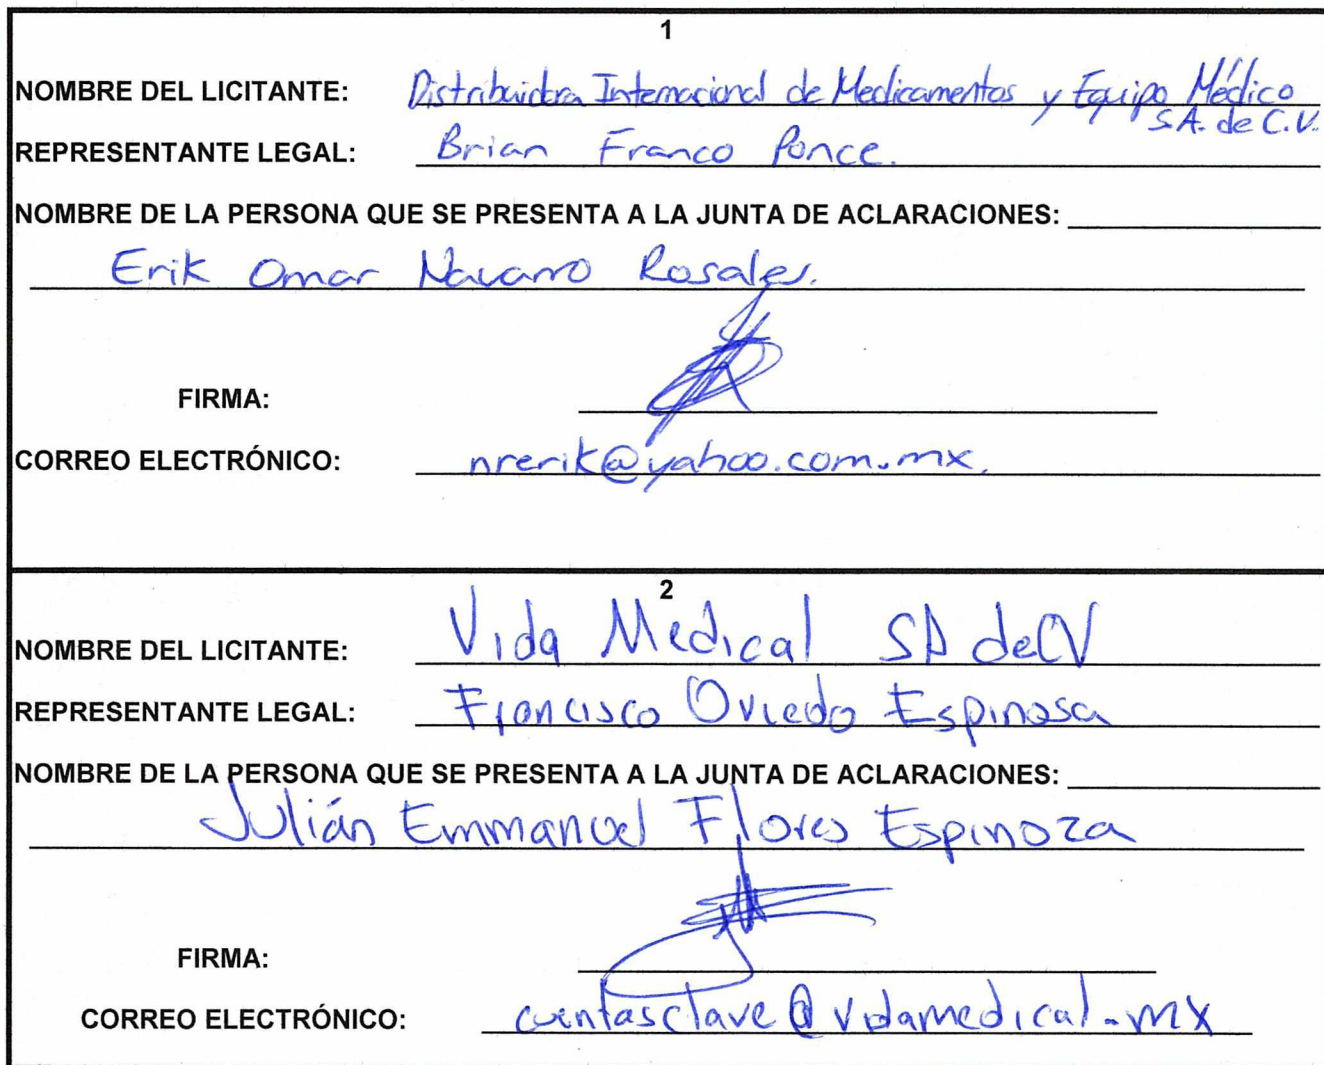 1
NOMBRE DEL LICITANTE: Distribuidora Internacional de Medicamentos y Equipo Médico
S.A. de C.V.
REPRESENTANTE LEGAL: Brian Franco Ponce.
NOMBRE DE LA PERSONA QUE SE PRESENTA A LA JUNTA DE ACLARACIONES:
Erik Omar Navarro Rosales.
FIRMA:
CORREO ELECTRÓNICO: nrerik@yahoo.com.mx.
2
NOMBRE DEL LICITANTE: Vida Medical SA de CV
REPRESENTANTE LEGAL: Francisco Oviedo Espinosa
NOMBRE DE LA PERSONA QUE SE PRESENTA A LA JUNTA DE ACLARACIONES:
Julián Emmanuel Flores Espinoza
FIRMA:
CORREO ELECTRÓNICO: cuentasclave@vidamedical.mx